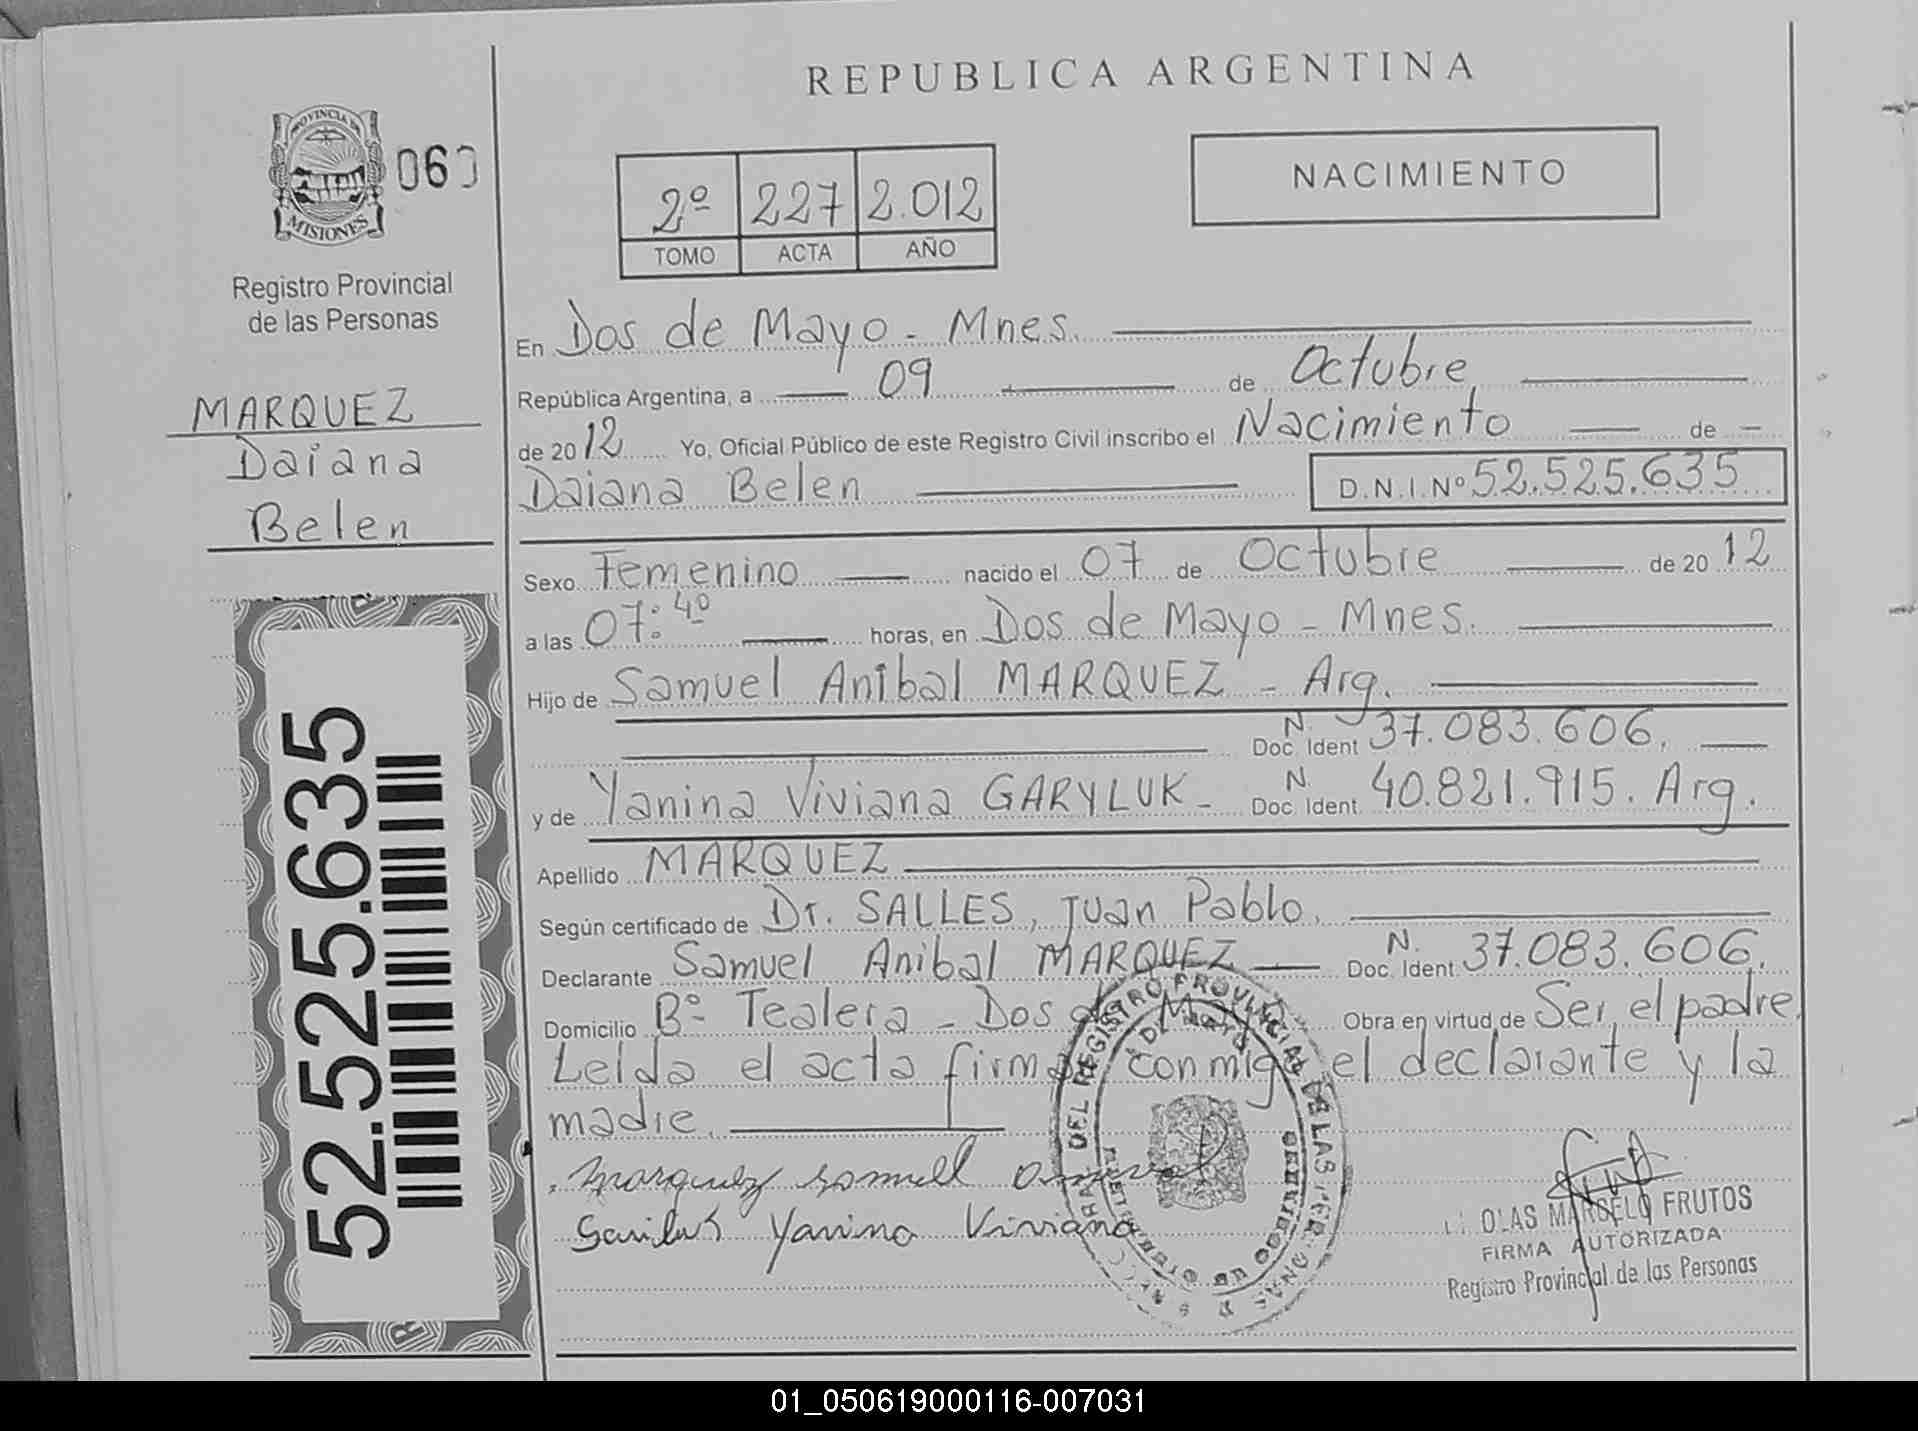 REPUBLICA ARGENTINA
PROVINCIA DE
MISIONES
060
Registro Provincial
de las Personas
MARQUEZ
Daiana
Belen
52.525.635
2º 227 2.012
TOMO ACTA AÑO
NACIMIENTO
En Dos de Mayo - Mnes.
República Argentina, a 09 de Octubre
de 2012 Yo, Oficial Público de este Registro Civil inscribo el Nacimiento de
Daiana Belen D.N.I. Nº 52.525.635
Sexo Femenino nacido el 07 de Octubre de 2012
a las 07:40 horas, en Dos de Mayo - Mnes.
Hijo de Samuel Anibal MARQUEZ - Arg.
N. Doc. Ident 37.083.606.
y de Yanina Viviana GARYLUK - N. Doc. Ident. 40.821.915. Arg.
Apellido MARQUEZ
Según certificado de Dr. SALLES, Juan Pablo.
Declarante Samuel Anibal MARQUEZ N. Doc. Ident 37.083.606.
Domicilio Bº Tealera - Dos de Mayo Obra en virtud de Ser el padre.
Leída el acta firma conmigo el declarante y la
madre.
Marquez Samuel
Yanina Viviana
DEL REGISTRO PROVINCIAL DE LAS PERSONAS
MARCELO FRUTOS
FIRMA AUTORIZADA
Registro Provincial de las Personas
01_050619000116-007031